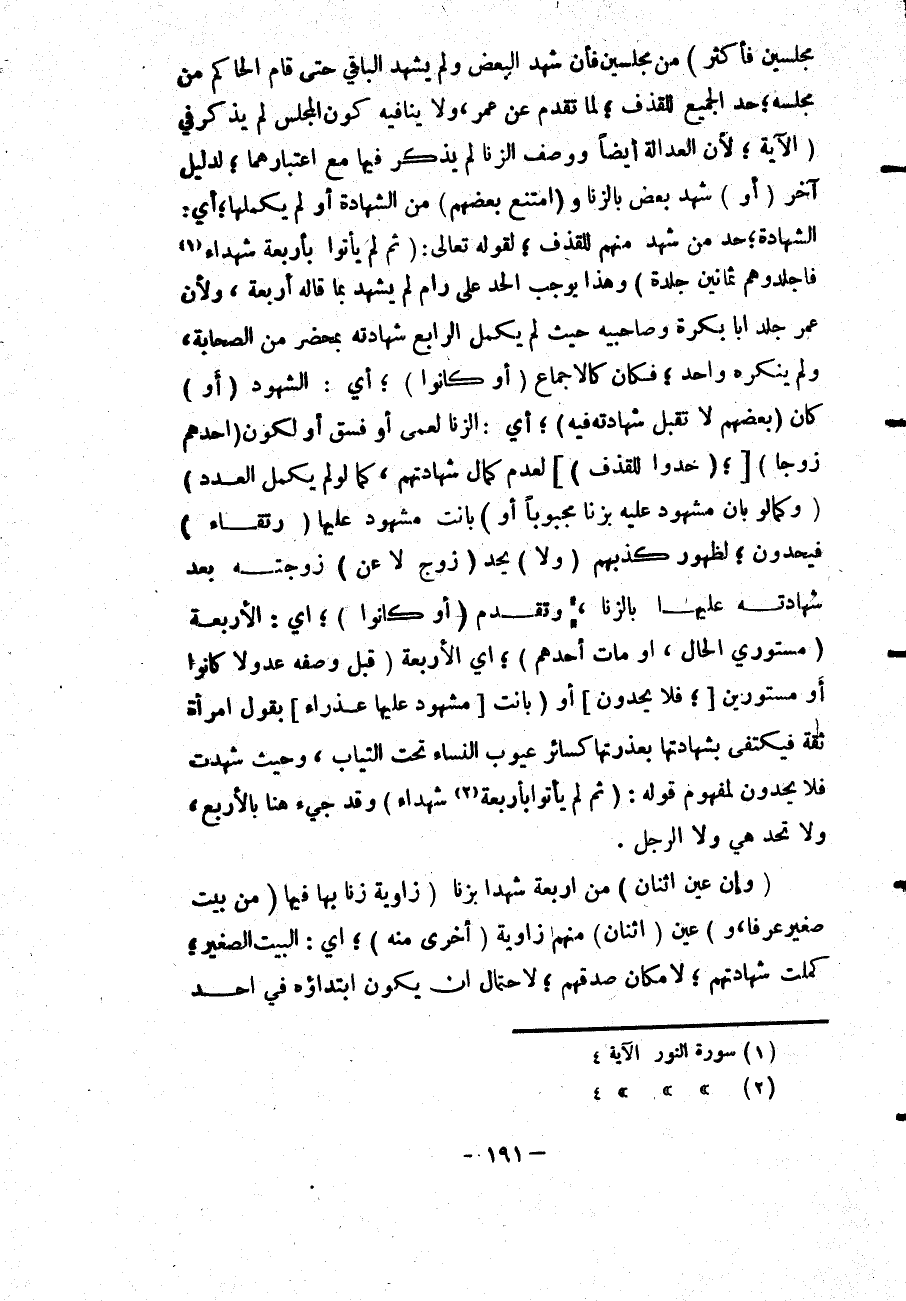 مجلسين فأكثر ) من مجلسين فأن شهد البعض ولم يشهد الباقي حتى قام الحاكم من
مجلسه ؛ حد الجميع للقذف ؛ لما تقدم عن عمر ، ولا ينافيه كون المجلس لم يذكر في
( الآية ؛ لأن العدالة أيضاً ووصف الزنا لم يذكر فيها مع اعتبارهما ؛ لدليل
آخر ( أو ) شهد بعض بالزنا و (امتنع بعضهم) من الشهادة أو لم يكملها ؛ أي :
الشهادة ؛ حد من شهد منهم للقذف ؛ لقوله تعالى : ( ثم لم يأتوا بأربعة شهداء (١)
فاجلدوهم ثمانين جلدة ) وهذا يوجب الحد على رام لم يشهد بما قاله أربعة ، ولأن
عمر جلد ابا بكرة وصاحبيه حيث لم يكمل الرابع شهادته بمحضر من الصحابة ،
ولم ينكره واحد ؛ فكان كالاجماع ( أو كانوا ) ؛ أي : الشهود ( أو )
كان (بعضهم لا تقبل شهادته فيه) ؛ أي : الزنا لعمى أو فسق أو لكون (احدهم
زوجا ) [ ؛ ( حدوا للقذف ) ] لعدم كمال شهادتهم ، كما لو لم يكمل العدد )
( وكما لو بان مشهود عليه بزنا مجبوباً أو ) بانت مشهود عليها ( رتقاء )
فيحدون ؛ لظهور كذبهم ( ولا ) يحد ( زوج لاعن ) زوجته بعد
شهادته عليها بالزنا ، وتقدم ( أو كانوا ) ؛ اي : الأربعة
( مستوري الحال ، او مات أحدهم ) ؛ اي الأربعة ( قبل وصفه عدولا كانوا
أو مستورين [ ؛ فلا يحدون ] أو ( بانت [ مشهود عليها عذراء ] بقول امرأة
ثقة فيكتفى بشهادتها بعذرتها كسائر عيوب النساء تحت الثياب ، وحيث شهدت
فلا يحدون لمفهوم قوله : ( ثم لم يأتوا بأربعة (٢) شهداء ) وقد جيء هنا بالأربع ،
ولا تحد هي ولا الرجل .
( وإن عين اثنان ) من اربعة شهدا بزنا ( زاوية زنا بها فيها ( من بيت
صغير عرفا ، و ) عين ( اثنان ) منهم زاوية ( أخرى منه ) ؛ اي : البيت الصغير ؛
كملت شهادتهم ؛ لامكان صدقهم ؛ لاحتمال ان يكون ابتداؤه في احد
(١) سورة النور الآية ٤
(٢) » » » ٤
– ١٩١ –